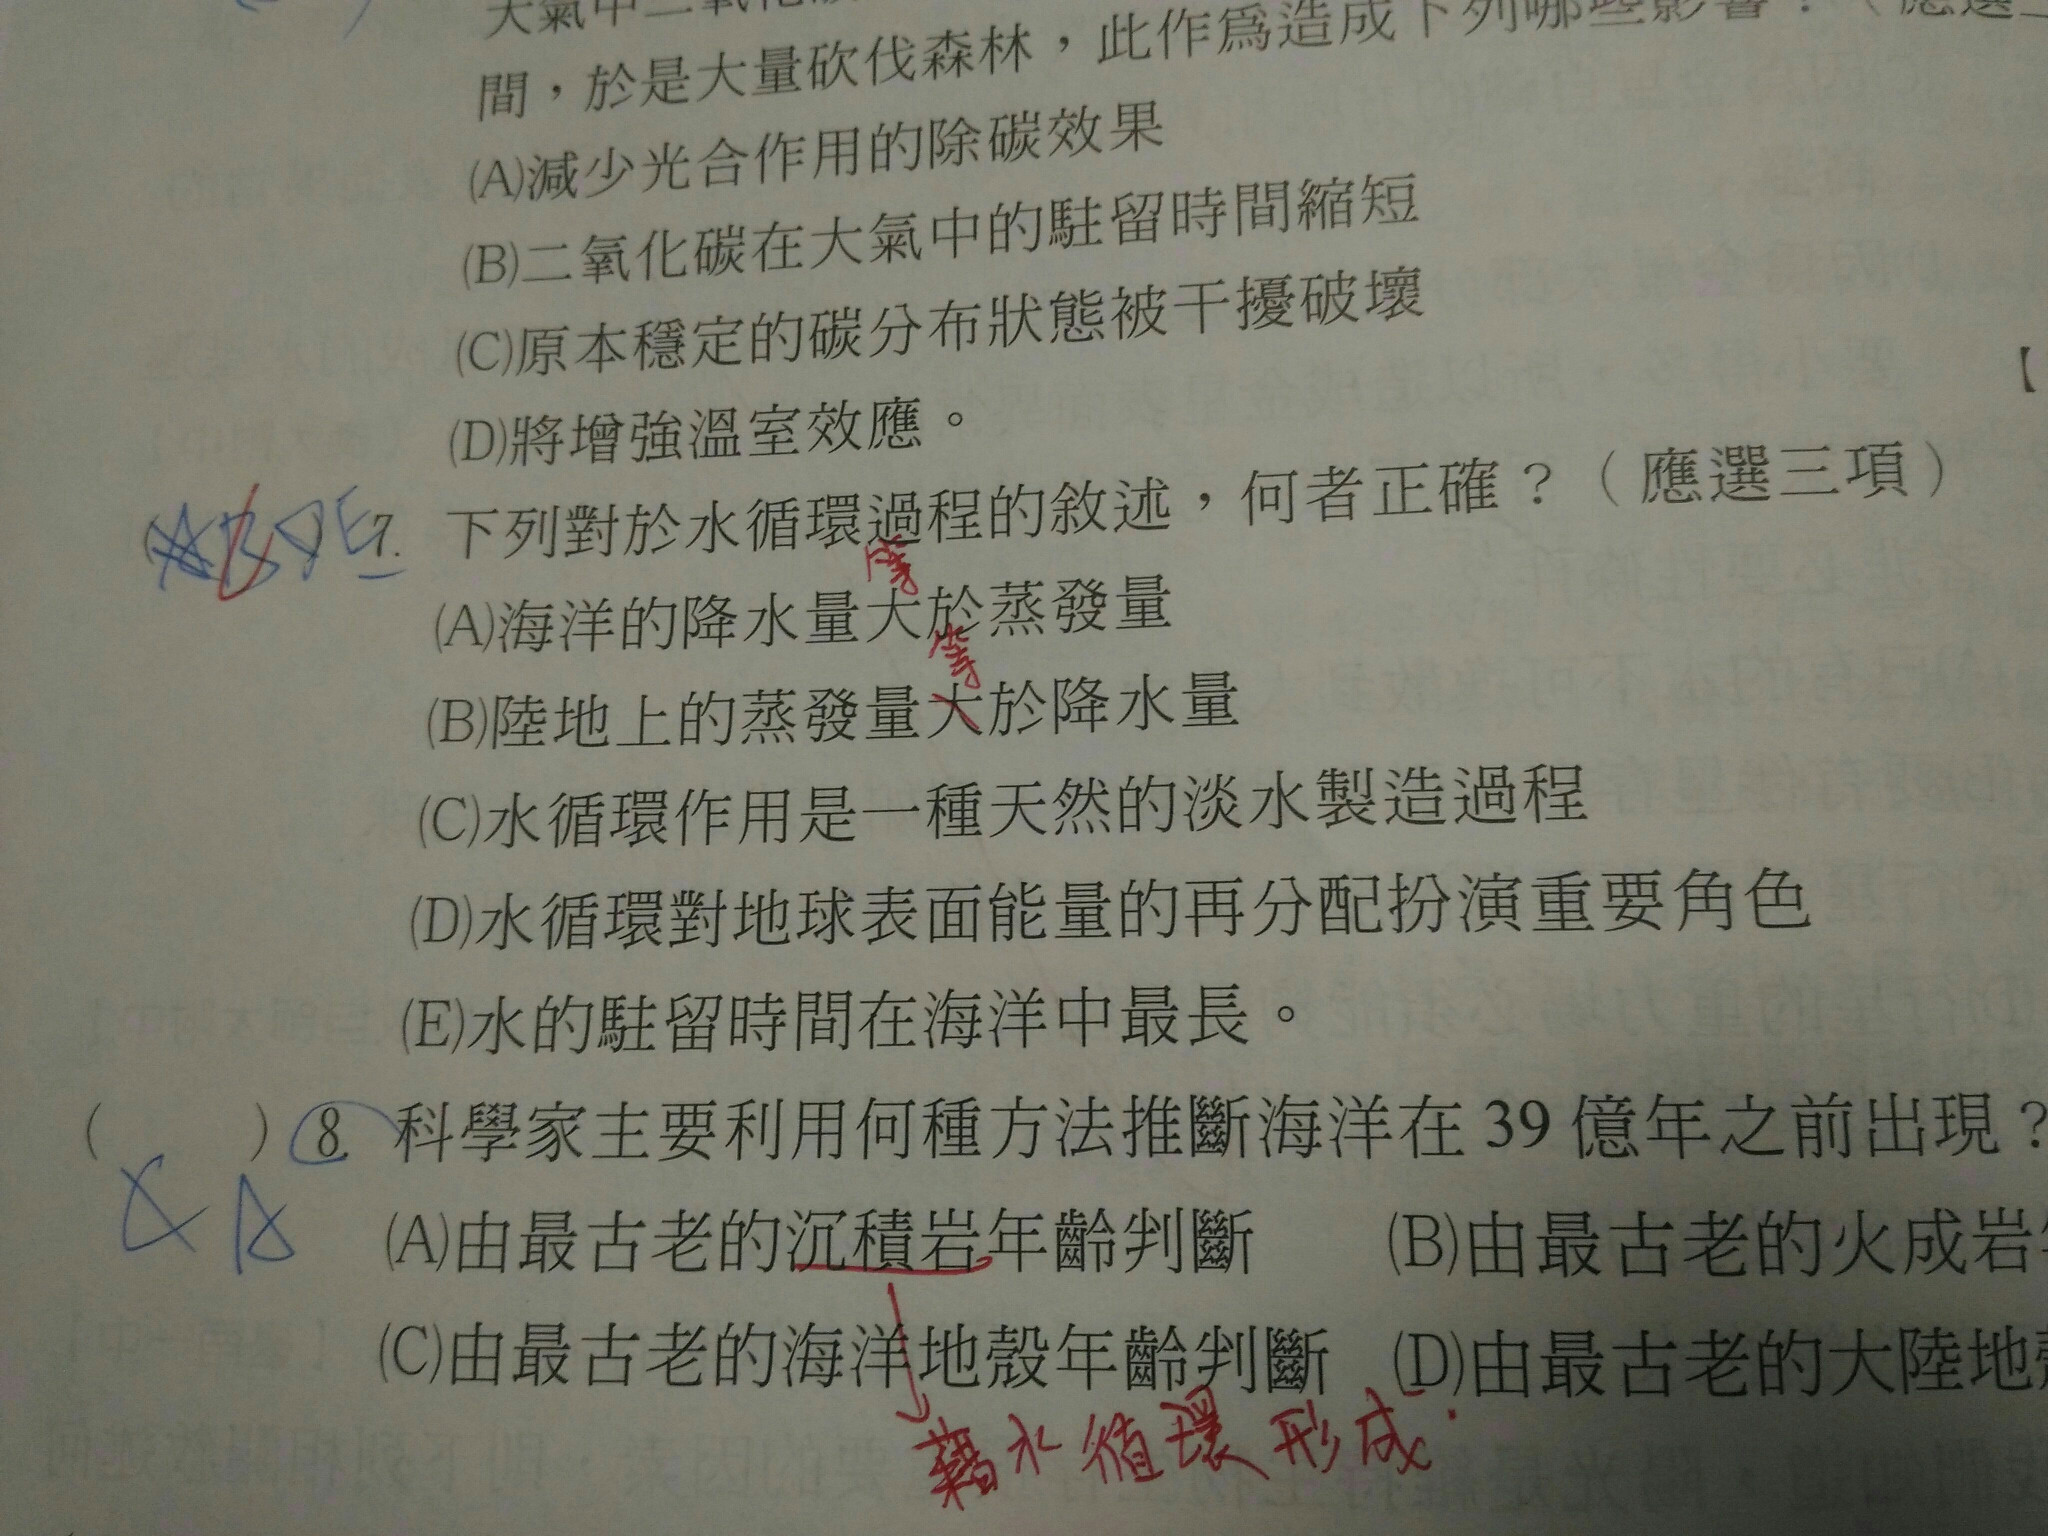 大氣中二氧化碳
間，於是大量砍伐森林，此作為造成下列哪些影響？（應選
(A)減少光合作用的除碳效果
(B)二氧化碳在大氣中的駐留時間縮短
(C)原本穩定的碳分布狀態被干擾破壞
(D)將增強溫室效應。
7. 下列對於水循環過程的敘述，何者正確？（應選三項）
等
(A)海洋的降水量大於蒸發量
等
(B)陸地上的蒸發量大於降水量
(C)水循環作用是一種天然的淡水製造過程
(D)水循環對地球表面能量的再分配扮演重要角色
(E)水的駐留時間在海洋中最長。
（ ）8. 科學家主要利用何種方法推斷海洋在 39 億年之前出現？
(A)由最古老的沉積岩年齡判斷 (B)由最古老的火成岩
(C)由最古老的海洋地殼年齡判斷 (D)由最古老的大陸地
藉水循環形成.